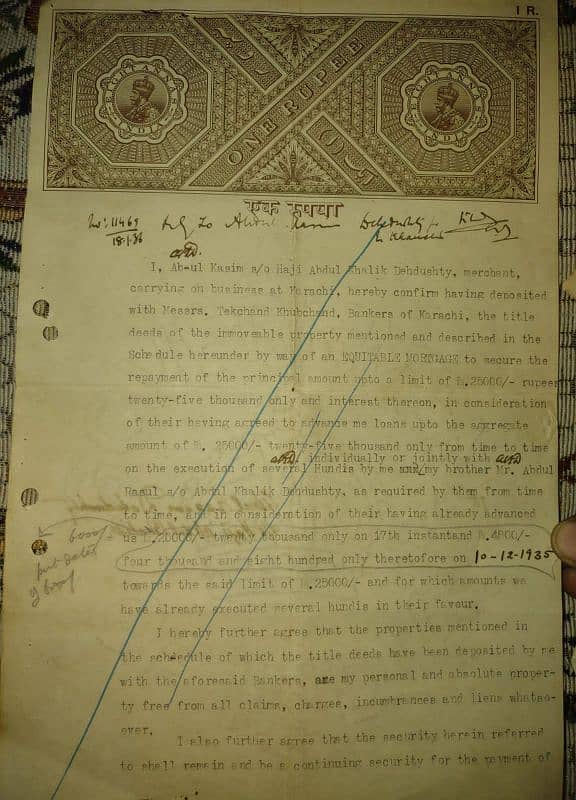 1 R.
ONE RUPEE
एक रूपया
No: 11469
18.1.36
Abdul
I, Ab-ul Kasim s/o Haji Abdul Khalik Dehdushty, merchant,
carrying on business at Karachi, hereby confirm having deposited
with Messrs. Tekchand Khubchand, Bankers of Karachi, the title
deeds of the immoveable property mentioned and described in the
Schedule hereunder by way of an EQUITABLE MORTGAGE to secure the
repayment of the principal amount upto a limit of Rs.25000/- rupees
twenty-five thousand only and interest thereon, in consideration
of their having agreed to advance me loans upto the aggregate
amount of Rs. 25000/- twenty-five thousand only from time to time
individually or jointly with
on the execution of several Hundis by me and/my brother Mr. Abdul
Rasul s/o Abdul Khalik Dehdushty, as required by them from time
to time, and in consideration of their having already advanced
us Rs.20000/- twenty thousand only on 17th instant and Rs.4800/-
four thousand and eight hundred only theretofore on 10-12-1935
towards the said limit of Rs.25000/- and for which amounts we
have already executed several hundis in their favour.
I hereby further agree that the properties mentioned in
the schedule of which the title deeds have been deposited by me
with the aforesaid Bankers, are my personal and absolute proper-
ty free from all claims, charges, incumbrances and liens whatso-
ever.
I also further agree that the security herein referred
to shall remain and be a continuing security for the payment of